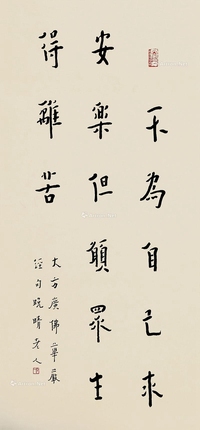 不為自己求
安樂但願眾生
得離苦
大方廣佛華嚴
經句晚晴老人